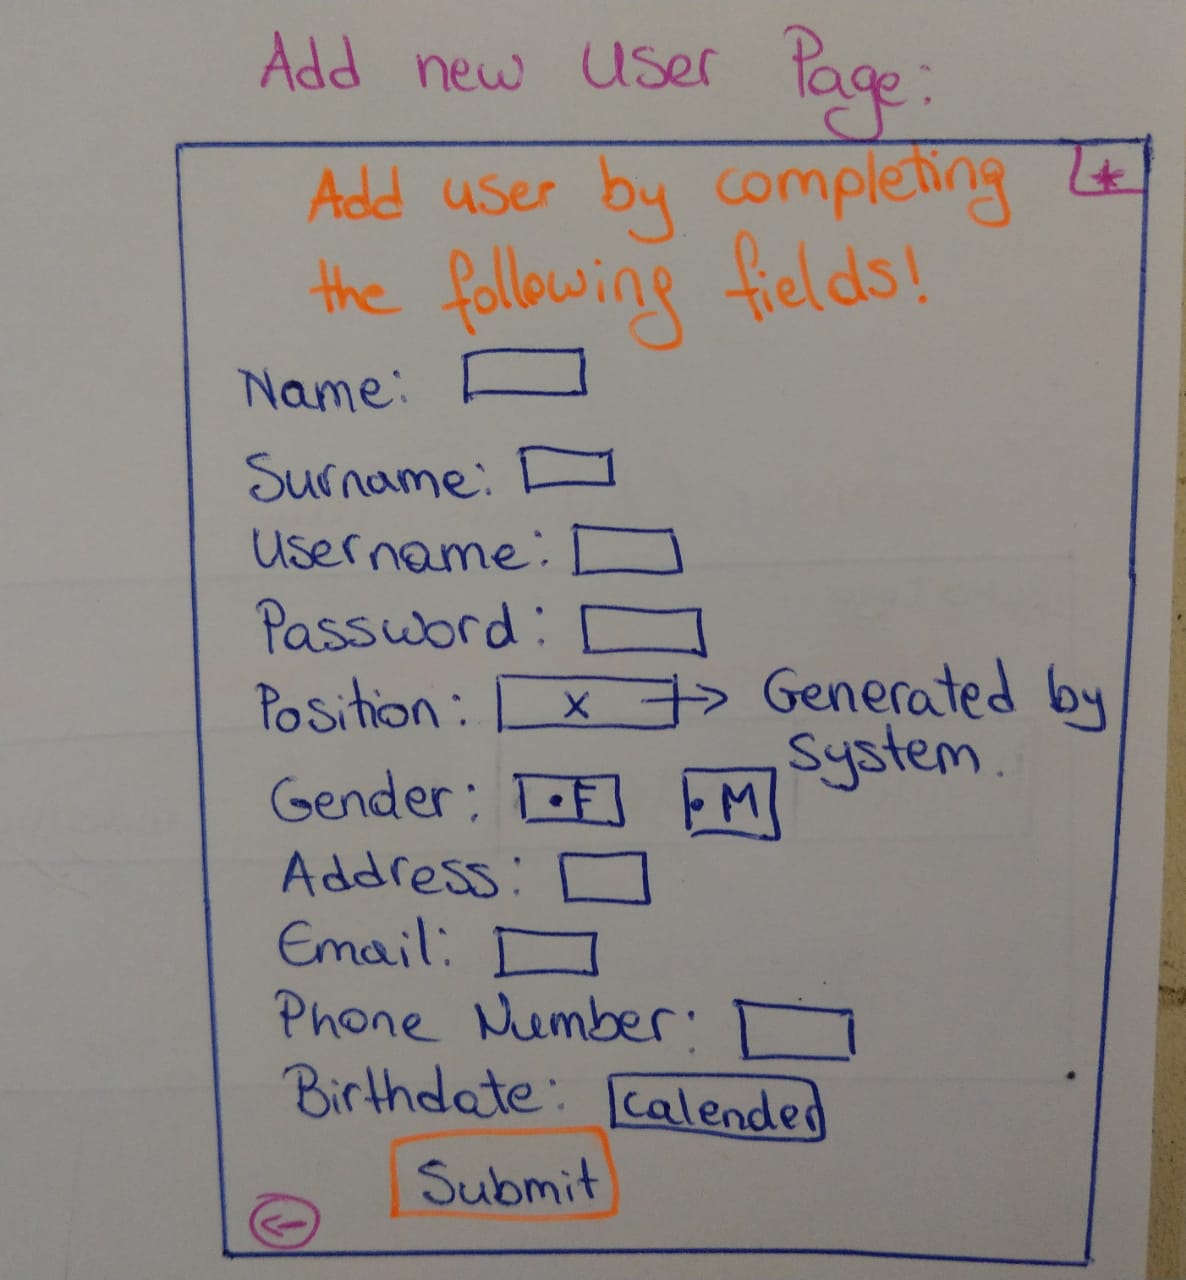 Add new User Page:
Add user by completing *
the following fields!
Name:
Surname:
Username:
Password:
Position: X → Generated by
system.
Gender: •F •M
Address:
Email:
Phone Number:
Birthdate: Calender
Submit
←